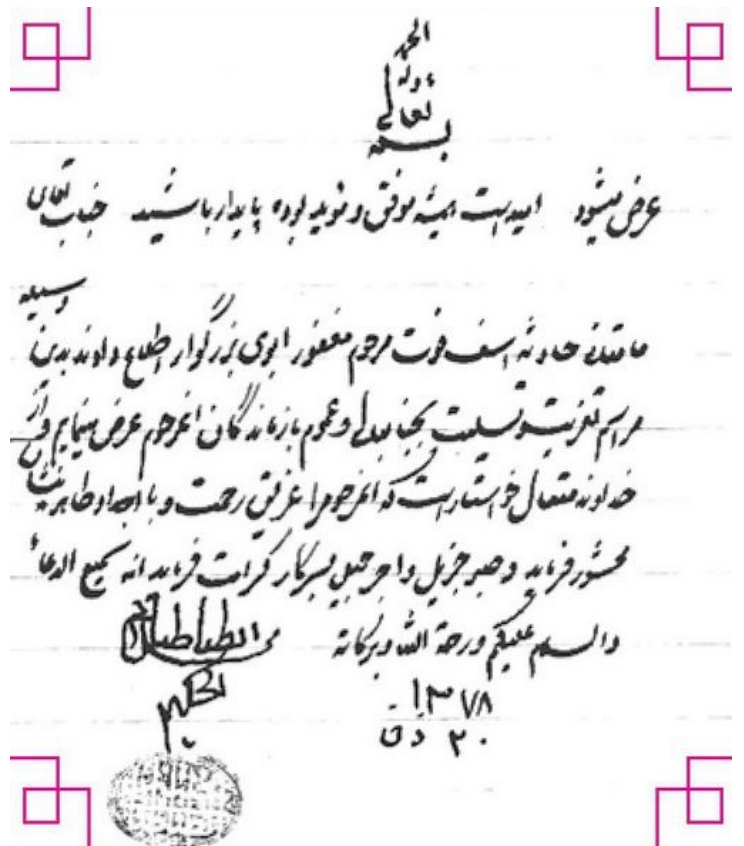 بسمه تعالی وله الحمد
عرض میشود امید است همیشه موفق و مؤید بوده پایدار باشید جناب آقای
حادثه اسف فوت مرحوم مغفور ابوی بزرگوار اطلاع دادند بدین وسیله
مراسم تعزیت و تسلیت بجنابعالی و عموم بازماندگان آنمرحوم عرض مینمایم و از
خداوند متعال خواستار است که آنمرحوم را غریق رحمت و با اجداد طاهرینشان
محشور فرماید و صبر جزیل و اجر جمیل بسرکار کرامت فرماید انه سمیع الدعاء
والسلام علیکم ورحمة الله وبرکاته
الطباطبائی
الحکیم
۱۳۷۸
۲۰ ذق